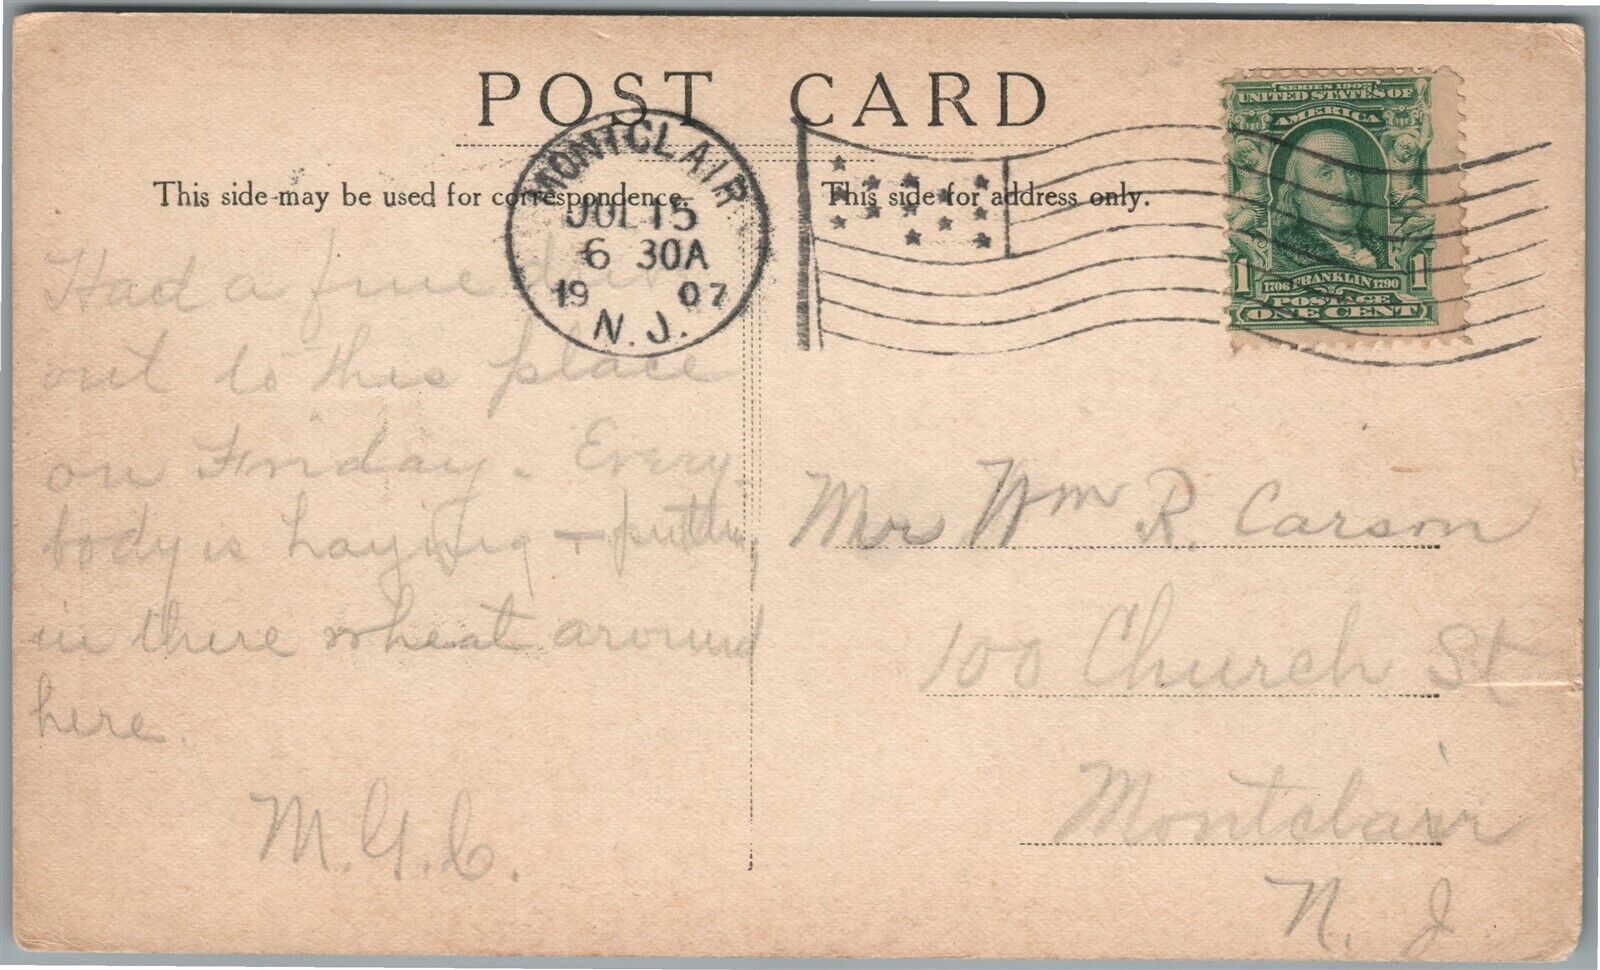 POST CARD
This side may be used for correspondence.
This side for address only.
MONTCLAIR
JUL 15
6 30A
19 07
N. J.
SERIES 1902
UNITED STATES OF
AMERICA
1 1706 FRANKLIN 1790 1
POSTAGE
ONE CENT
Had a fine
out to this place
on Friday. Every
body is haying + putting
in there wheat around
here.
M.G.C.
Mrs Wm R. Carson
100 Church St
Montclair
N. J.